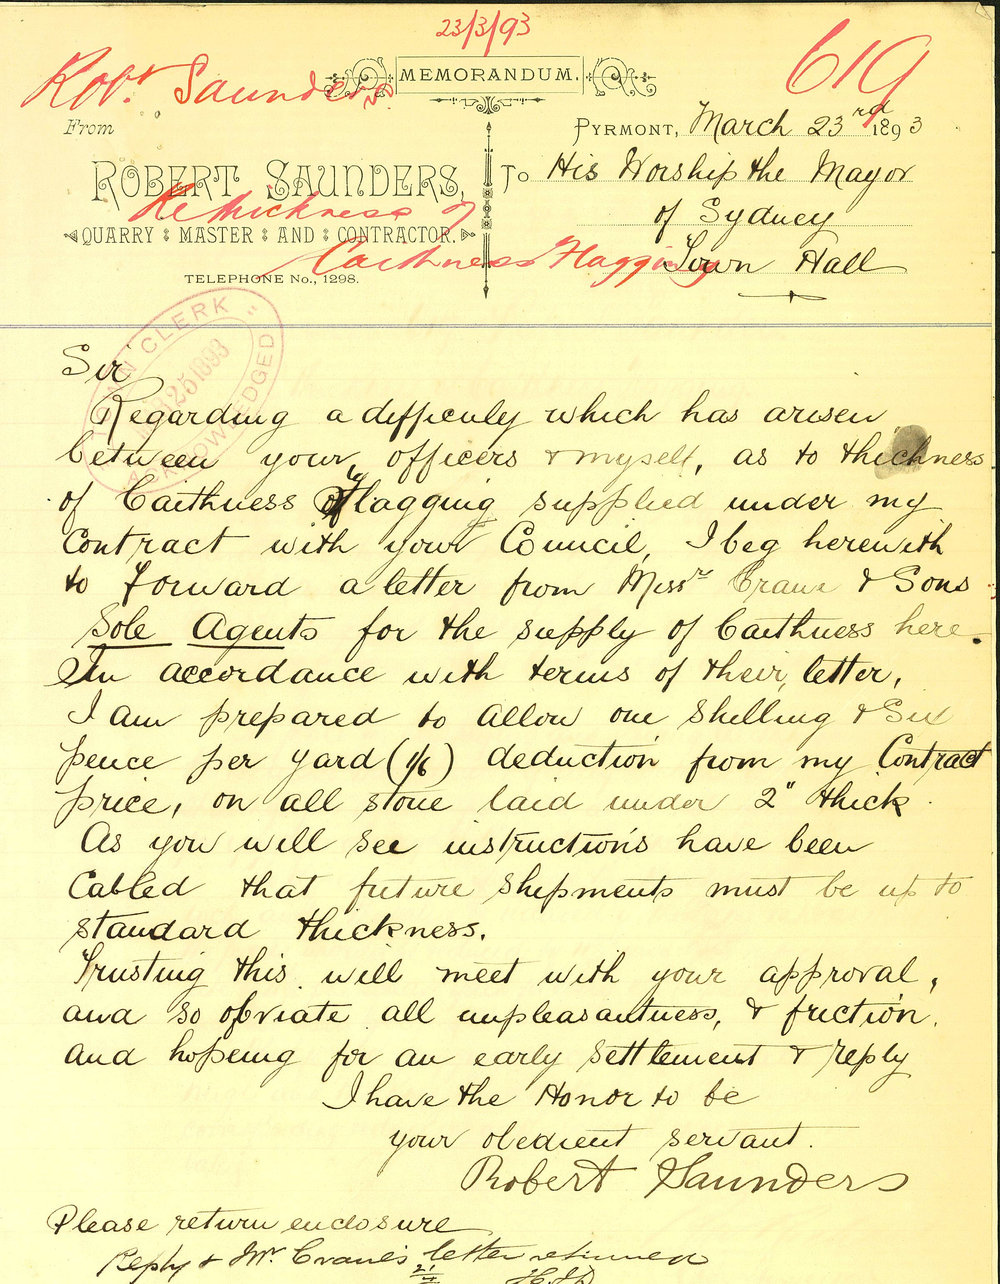 23/3/93
619
Robt Saunders
MEMORANDUM.
From
PYRMONT, March 23rd 1893
ROBERT SAUNDERS,
To His Worship the Mayor
of Sydney
Town Hall
Re thickness of
Caithness Flagging
QUARRY MASTER AND CONTRACTOR.
TELEPHONE No., 1298.
TOWN CLERK
25 1893
ACKNOWLEDGED
Sir
Regarding a difficuly which has arisen
between your officers & myself, as to thickness
of Caithness Flagging supplied under my
Contract with your Council, I beg herewith
to Forward a letter from Messrs Crane & Sons
Sole Agents for the supply of Caithness here.
In accordance with terms of their letter,
I am prepared to allow one shilling & Six
pence per yard (1/6) deduction from my Contract
price, on all stone laid under 2" thick.
As you will see instructions have been
Cabled that future shipments must be up to
standard thickness.
Trusting this will meet with your approval,
and so obviate all unpleasantness, & friction.
and hopeing for an early settlement & reply
I have the Honor to be
your obedient servant.
Robert Saunders
Please return enclosure
Reply & Mr. Crane's letter returned